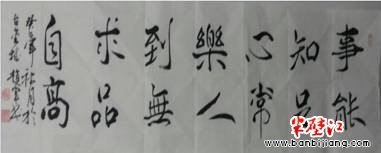 事能
知足
心常
樂人
到無
求品
自高
癸巳年秋月於
半壁江
www.banbijiang.com